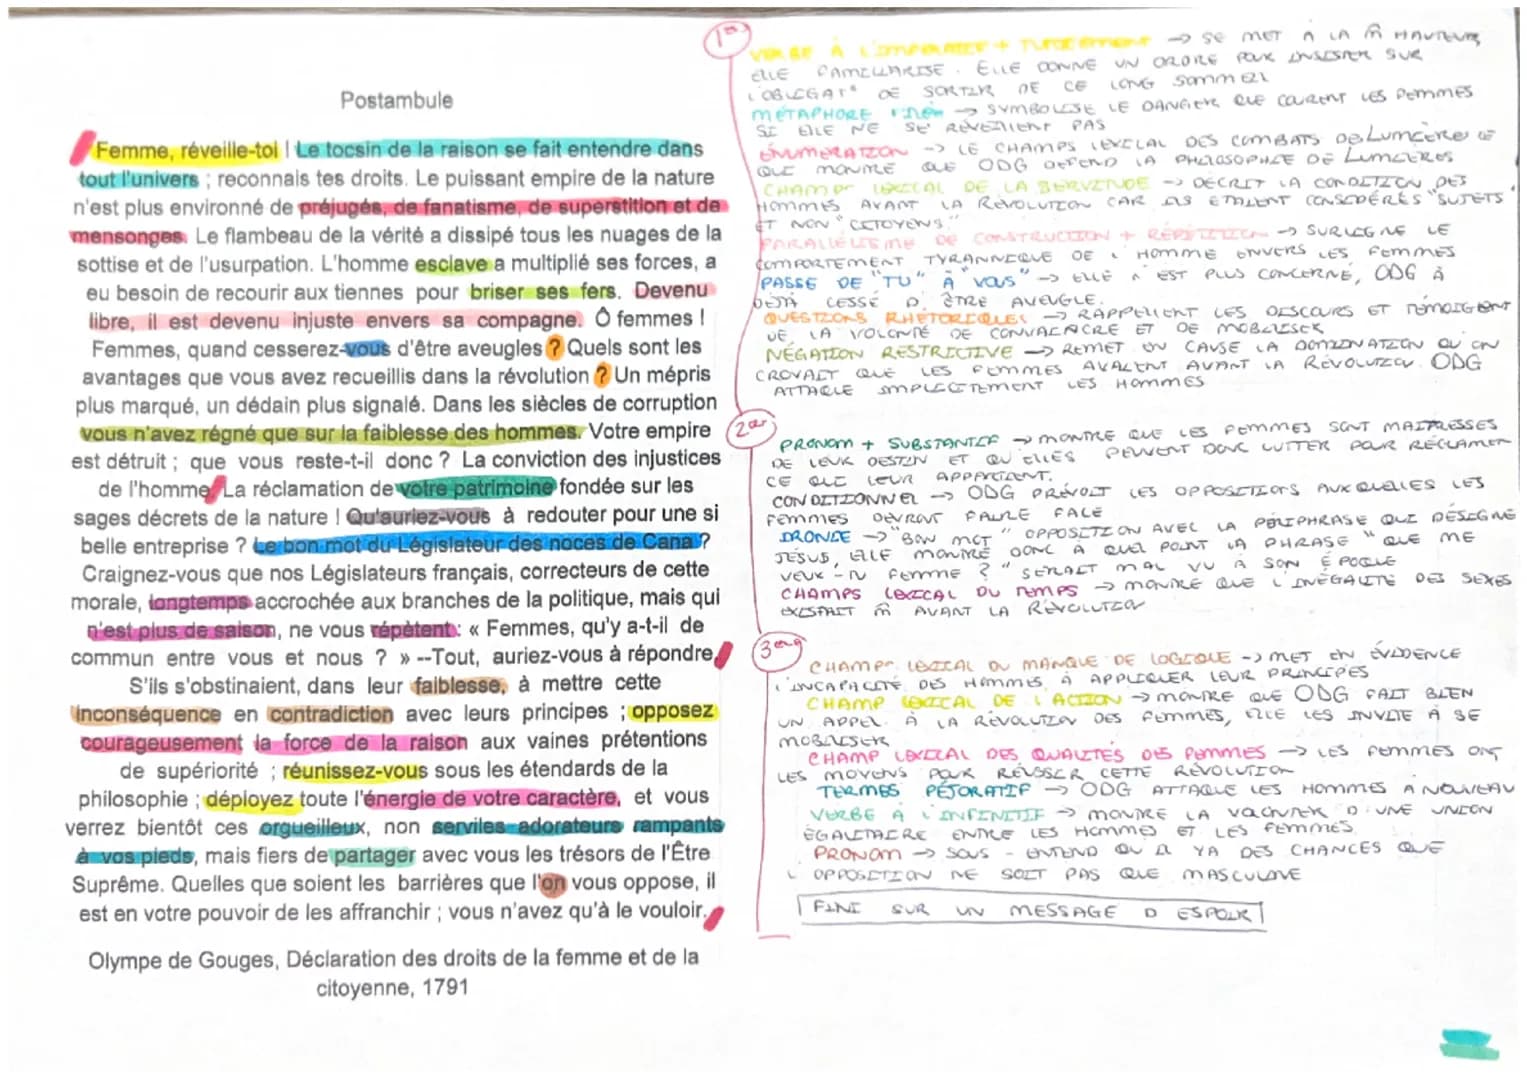 Postambule
Femme, réveille-toi ! Le tocsin de la raison se fait entendre dans
tout l'univers ; reconnais tes droits. Le puissant empire de la nature
n'est plus environné de préjugés, de fanatisme, de superstition et de
mensonges. Le flambeau de la vérité a dissipé tous les nuages de la
sottise et de l'usurpation. L'homme esclave a multiplié ses forces, a
eu besoin de recourir aux tiennes pour briser ses fers. Devenu
libre, il est devenu injuste envers sa compagne. Ô femmes !
Femmes, quand cesserez-vous d'être aveugles ? Quels sont les
avantages que vous avez recueillis dans la révolution ? Un mépris
plus marqué, un dédain plus signalé. Dans les siècles de corruption
vous n'avez régné que sur la faiblesse des hommes. Votre empire
est détruit ; que vous reste-t-il donc ? La conviction des injustices
de l'homme. La réclamation de votre patrimoine fondée sur les
sages décrets de la nature ! Qu'auriez-vous à redouter pour une si
belle entreprise ? Le bon mot du Législateur des noces de Cana ?
Craignez-vous que nos Législateurs français, correcteurs de cette
morale, longtemps accrochée aux branches de la politique, mais qui
n'est plus de saison, ne vous répètent : « Femmes, qu'y a-t-il de
commun entre vous et nous ? » --Tout, auriez-vous à répondre.
S'ils s'obstinaient, dans leur faiblesse, à mettre cette
inconséquence en contradiction avec leurs principes ; opposez
courageusement la force de la raison aux vaines prétentions
de supériorité ; réunissez-vous sous les étendards de la
philosophie ; déployez toute l'énergie de votre caractère, et vous
verrez bientôt ces orgueilleux, non serviles adorateurs rampants
à vos pieds, mais fiers de partager avec vous les trésors de l'Être
Suprême. Quelles que soient les barrières que l'on vous oppose, il
est en votre pouvoir de les affranchir ; vous n'avez qu'à le vouloir.
Olympe de Gouges, Déclaration des droits de la femme et de la
citoyenne, 1791
1er
VERBE À L'IMPÉRATIF + TUTOIEMENT -> SE MET À LA M̂ HAUTEUR,
ELLE FAMILIARISE. ELLE DONNE UN ORDRE POUR INSISTER SUR
L'OBLIGAT° DE SORTIR DE CE LONG SOMMEIL
MÉTAPHORE -> SYMBOLISE LE DANGER QUE COURENT LES FEMMES
SI ELLE NE SE RÉVEILLENT PAS
ÉNUMÉRATION -> LE CHAMPS LEXICAL DES COMBATS DES LUMIÈRES
QUI MONTRE QUE ODG DÉFEND LA PHILOSOPHIE DE LUMIÈRES
CHAMP LEXICAL DE LA SERVITUDE -> DÉCRIT LA CONDITION DES
HOMMES AVANT LA RÉVOLUTION CAR ILS ÉTAIENT CONSIDÉRÉS "SUJETS"
ET NON "CITOYENS"
PARALLÉLISME DE CONSTRUCTION + RÉPÉTITION -> SURLIGNE LE
COMPORTEMENT TYRANNIQUE DE L'HOMME ENVERS LES FEMMES
PASSE DE "TU" À "VOUS" -> ELLE N'EST PLUS CONCERNÉ, ODG À
DÉJÀ CESSÉ D'ÊTRE AVEUGLE.
QUESTIONS RHÉTORIQUES -> RAPPELLENT LES DISCOURS ET TÉMOIGNENT
DE LA VOLONTÉ DE CONVAINCRE ET DE MOBILISER
NÉGATION RESTRICTIVE -> REMET EN CAUSE LA DOMINATION QU'ON
CROYAIT QUE LES FEMMES AVAIENT AVANT LA RÉVOLUTION. ODG
ATTAQUE IMPLICITEMENT LES HOMMES
2e
PRONOM + SUBSTANTIF -> MONTRE QUE LES FEMMES SONT MAITRESSES
DE LEUR DESTIN ET QU'ELLES PEUVENT DONC LUTTER POUR RÉCLAMER
CE QUI LEUR APPARTIENT.
CONDITIONNEL -> ODG PRÉVOIT LES OPPOSITIONS AUXQUELLES LES
FEMMES DEVRONT FAIRE FACE
IRONIE -> "BON MOT" OPPOSITION AVEC LA PÉRIPHRASE QUI DÉSIGNE
JÉSUS, ELLE MONTRE DONC À QUEL POINT LA PHRASE "QUE ME
VEUX-TU FEMME ?" SERAIT MAL VU À SON ÉPOQUE
CHAMPS LEXICAL DU TEMPS -> MONTRE QUE L'INÉGALITÉ DES SEXES
EXISTAIT M̂ AVANT LA RÉVOLUTION
3e
CHAMP LEXICAL DU MANQUE DE LOGIQUE -> MET EN ÉVIDENCE
L'INCAPACITÉ DES HOMMES À APPLIQUER LEUR PRINCIPES
CHAMP LEXICAL DE L'ACTION -> MONTRE QUE ODG FAIT BIEN
UN APPEL À LA RÉVOLUTION DES FEMMES, ELLE LES INVITE À SE
MOBILISER
CHAMP LEXICAL DES QUALITÉS DES FEMMES -> LES FEMMES ONT
LES MOYENS POUR RÉUSSIR CETTE RÉVOLUTION
TERMES PÉJORATIF -> ODG ATTAQUE LES HOMMES A NOUVEAU
VERBE À L'INFINITIF -> MONTRE LA VOLONTER D'UNE UNION
ÉGALITAIRE ENTRE LES HOMMES ET LES FEMMES
PRONOM -> SOUS-ENTEND QU'IL YA DES CHANCES QUE
L'OPPOSITION NE SOIT PAS QUE MASCULINE
FINI SUR UN MESSAGE D'ESPOIR